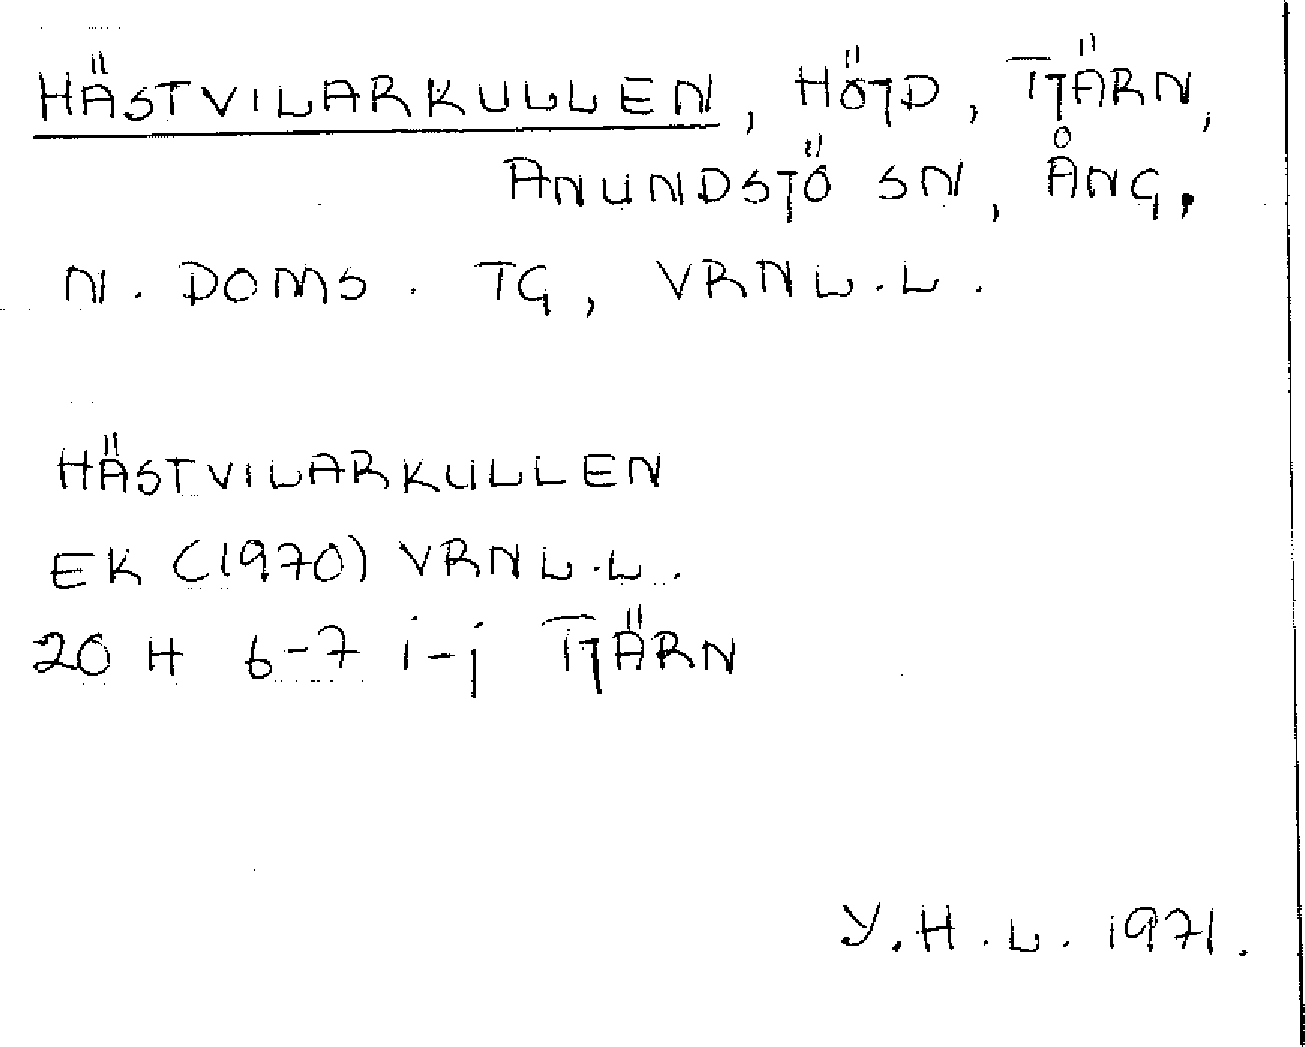 HÄSTVILARKULLEN, HÖJD, TJÄRN,
ANUNDSJÖ SN, ÅNG.
N. DOMS. TG, VRNL.L.
HÄSTVILARKULLEN
EK (1970) VRNL.L.
20 H 6-7 i-j TJÄRN
Y.H.L. 1971.